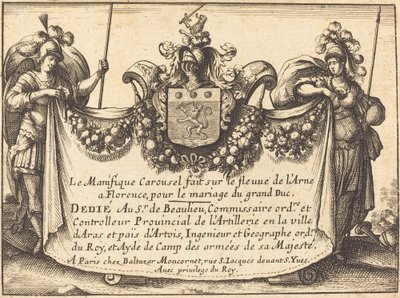 Le Manifique Carousel fait sur le fleuue de l'Arne
a Florence, pour le mariage du grand Duc.
DEDIÉ Au Sr. de Beaulieu, Commissaire ordre. et
Controlleur Provincial de l'Artillerie en la ville
d'Aras et païs d'Artois, Ingenieur et Geographe ordre.
du Roy, et Ayde de Camp des armées de sa Majesté.
A Paris chez Baltazar Moncornet, rue S. Iacques devant S. Yues.
Avec privilege du Roy.